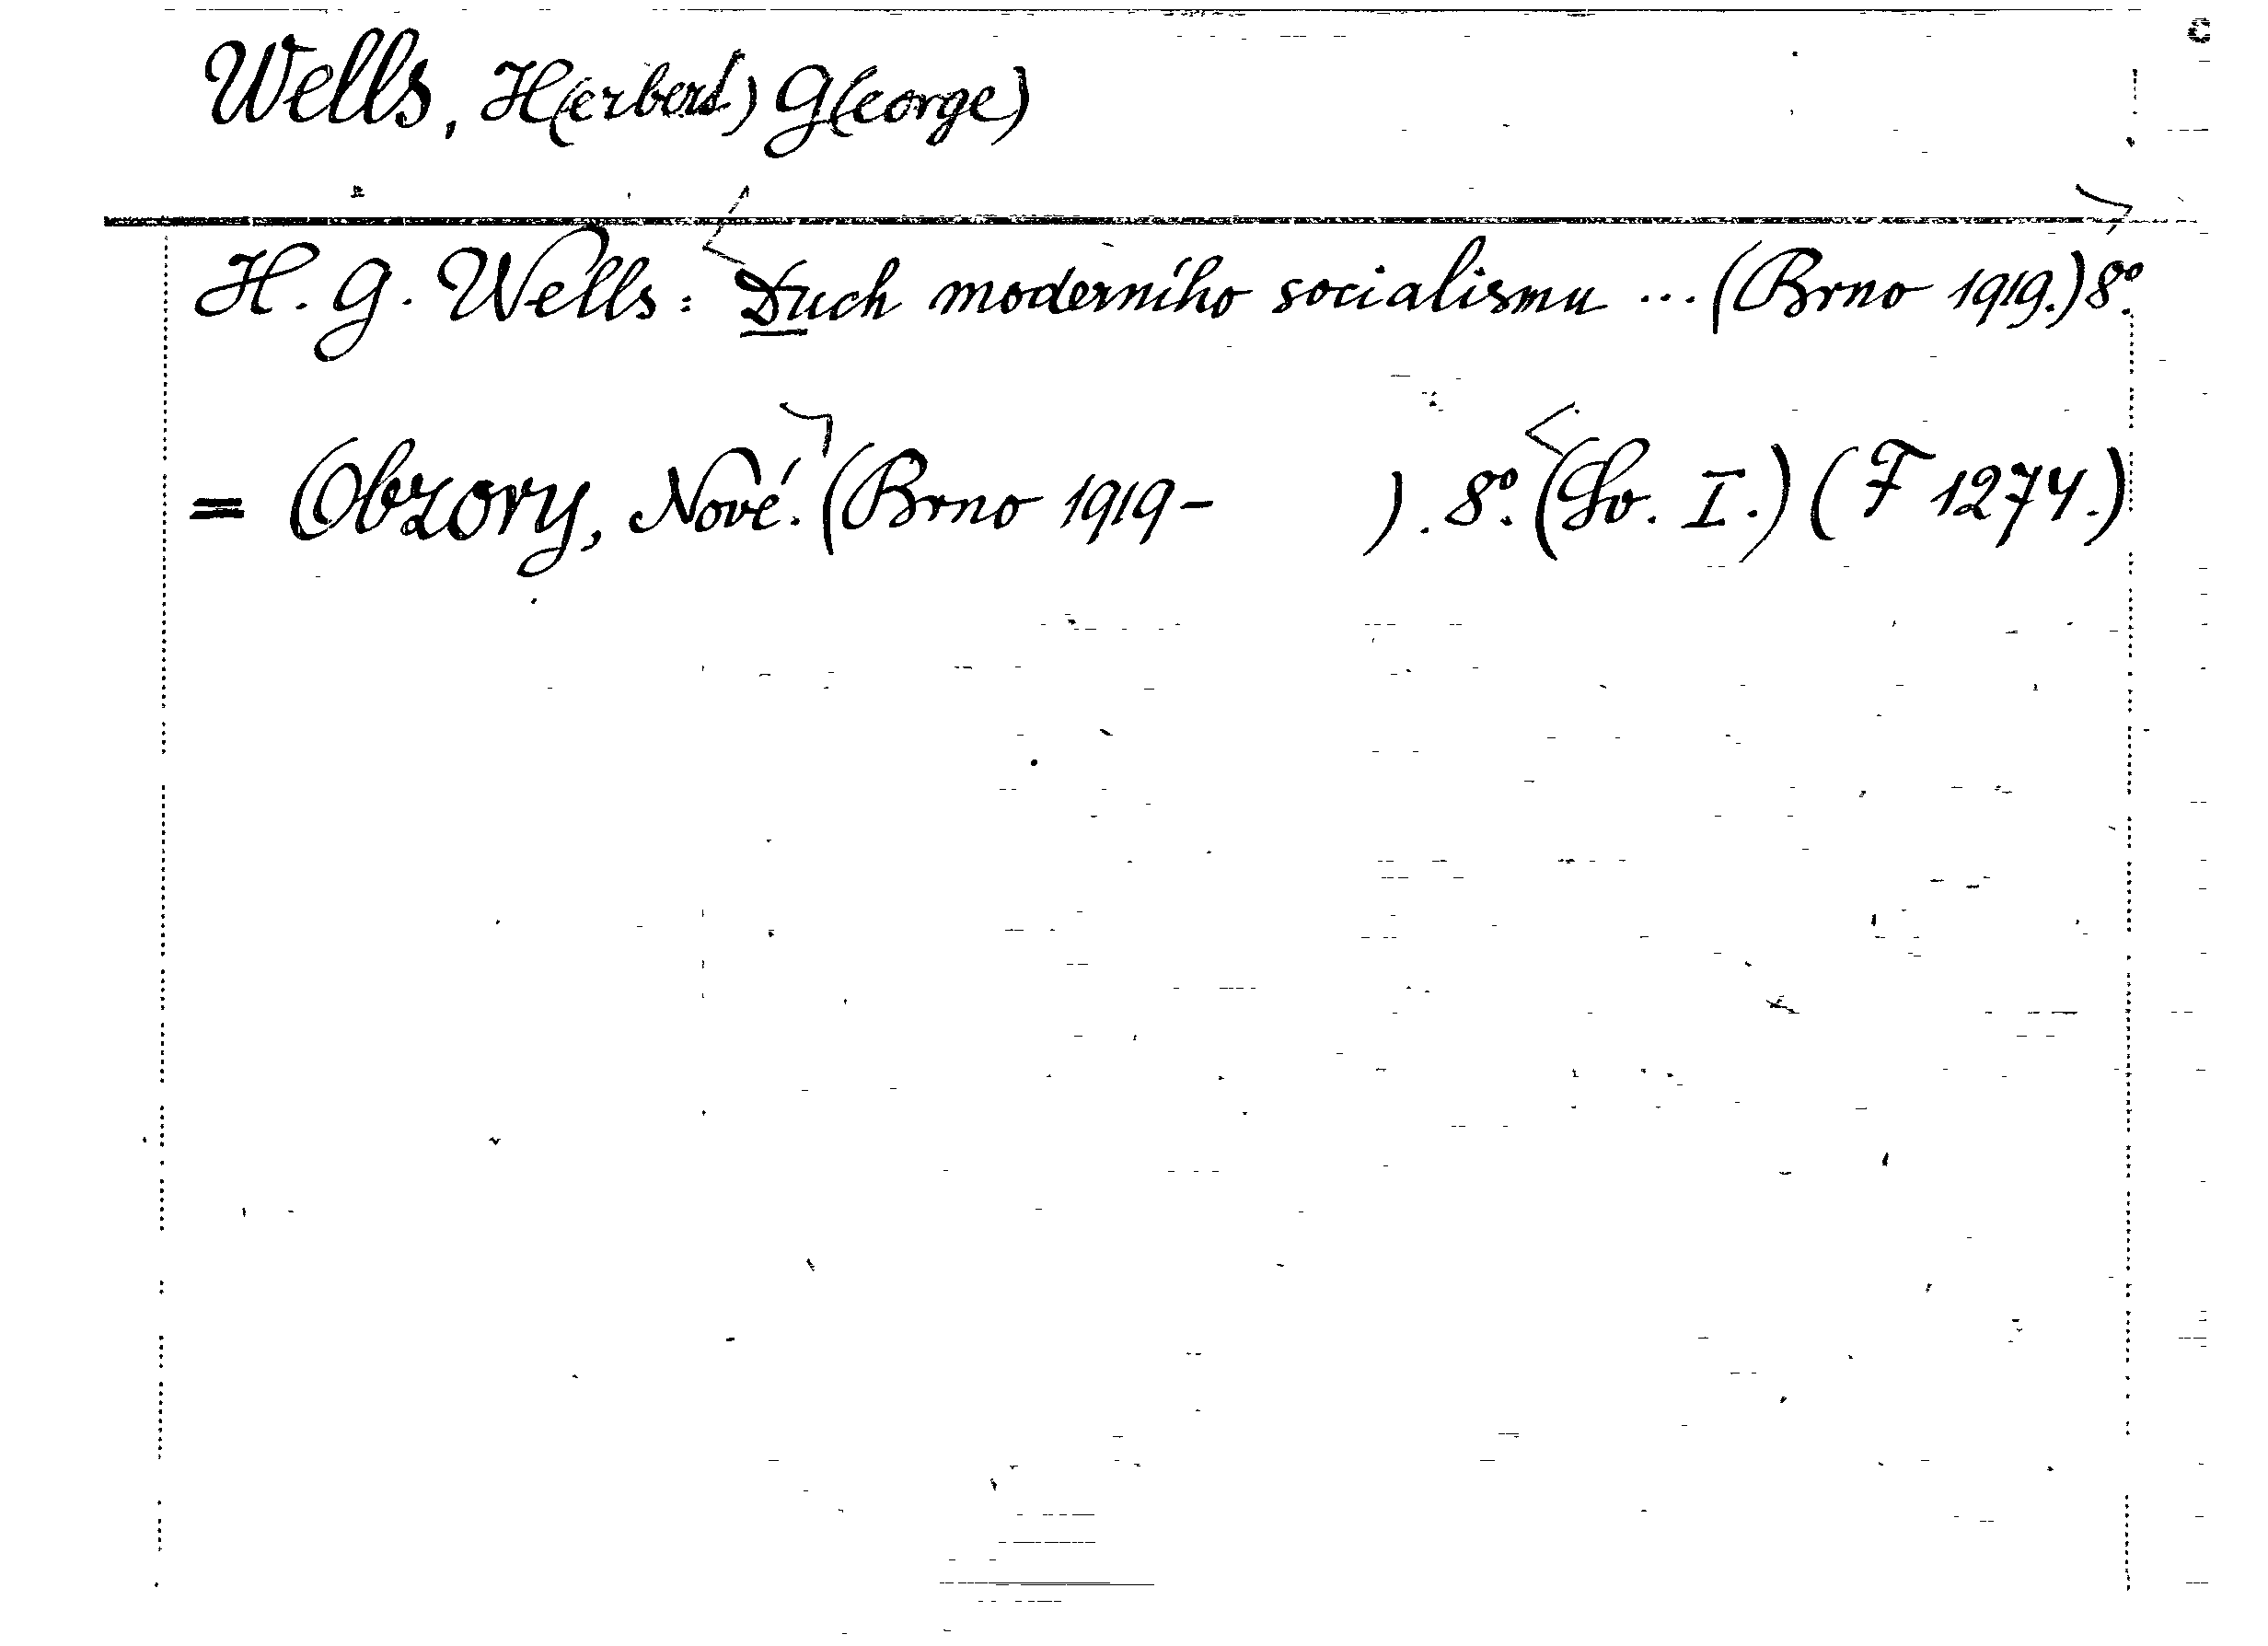 Wells, H(erbert) G(eorge)
H. G. Wells: Duch moderního socialismu ... (Brno 1919.) 8°.
= Obzory, Nové. (Brno 1919- ). 8°. (Sv. I.) (F 1274.)